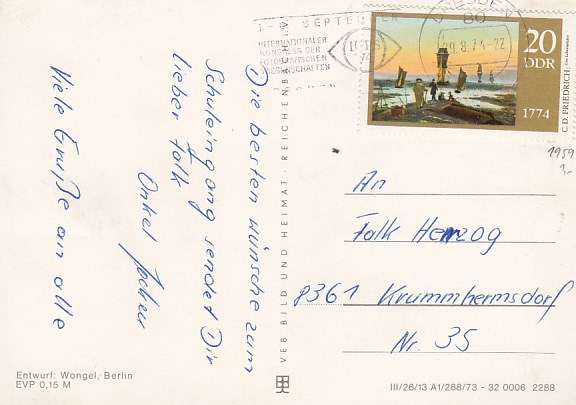 Die besten Wünsche zum
Schuleingang sendet Dir
lieber Falk
Onkel Jochen
Viele Grüße an alle
Entwurf: Wongel, Berlin
EVP 0,15 M
VEB BILD UND HEIMAT · REICHENBACH
1. SEPTEMBER
INTERNATIONALER
KONGRESS DER
FOTOGRAFISCHEN
WISSENSCHAFTEN
80
9.8.74-22
20
DDR
1774
C.D. FRIEDRICH:
1959
1,-
An
Falk Herzog
8361 Krummhermsdorf
Nr. 35
III/26/13 A1/288/73 - 32 0006 2288